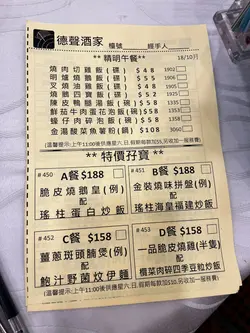 德聲酒家 檯號 經手人
** 精明午餐** 18/10月
燒肉切雞飯(碟) $48 1902
明爐燒鵝飯(碟) $55
叉燒油雞飯(碟) $55
燒鵝四寶飯(碟) $58
陳皮鴨腿湯飯(碗) $58
鮮茄牛肉蛋花泡飯(碗) $58
榛仔肉碎泡飯(碗) $58
金湯酸菜魚薯粉(碗) $108 3060
(溫馨提示:上午11:00後供應星期六,日,假期每款加$5,另收加一服務費)
** 特價孖寶**
#450 A餐 $188
脆皮燒鵝皇(例)
配
瑤柱蛋白炒飯
#451 B餐 $188
金裝燒味拼盤(例)
配
瑤柱海皇福建炒飯
#452 C餐 $158
薑蔥斑頭腩煲(例)
配
鮑汁野菌炆伊麵
#453 D餐 $158
一品脆皮燒雞(半隻)
配
欖菜肉碎四季豆粒炒飯
(溫馨提示:上午11:00後供應星期六,日,假期每款加$5,另收加一服務費)